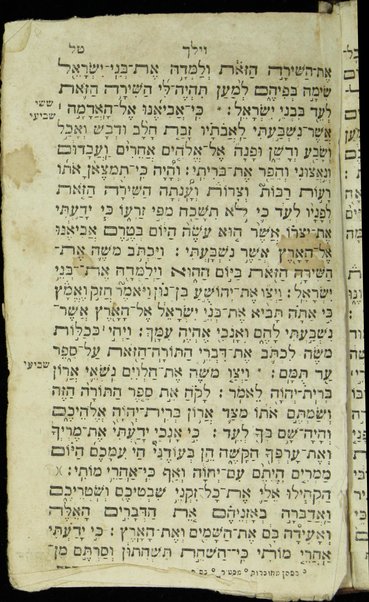 וילך
טל
את־השירה הזאת ולמדה את־בני־ישראל
שימה בפיהם למען תהיה־לי השירה הזאת
לעד בבני ישראל: * כי־אביאנו אל־האדמה ׀
ששי
שביעי
אשר־נשבעתי לאבתיו זבת חלב ודבש ואכל
ושבע ודשן ופנה אל־אלהים אחרים ועבדום
ונאצוני והפר את־בריתי: והיה כי־תמצאן אתו
רעות רבות וצרות וענתה השירה הזאת
לפניו לעד כי לא תשכח מפי זרעו כי ידעתי
את־יצרו אשר הוא עשה היום בטרם אביאנו
אל־הארץ אשר נשבעתי: ויכתב משה את־
השירה הזאת ביום ההוא וילמדה את־בני
ישראל: ויצו את־יהושע בן־נון ויאמר חזק ואמץ
כי אתה תביא את־בני ישראל אל־הארץ אשר־
נשבעתי להם ואנכי אהיה עמך: ויהי ׀ ככלות
משה לכתב את־דברי התורה־הזאת על־ספר
עד תמם: * ויצו משה את־הלוים נשאי ארון
שביעי
ברית־יהוה לאמר: לקח את ספר התורה הזה
ושמתם אתו מצד ארון ברית־יהוה אלהיכם
והיה־שם בך לעד: כי אנכי ידעתי את־מריך
ואת־ערפך הקשה הן בעודני חי עמכם היום
ממרים היתם עם־יהוה ואף כי־אחרי מותי:
הקהילו אלי את־כל־זקני שבטיכם ושטריכם
ואדברה באזניהם את הדברים האלה
ואעידה בם את־השמים ואת־הארץ: כי ידעתי
אחרי מותי כי־השחת תשחתון וסרתם מן־